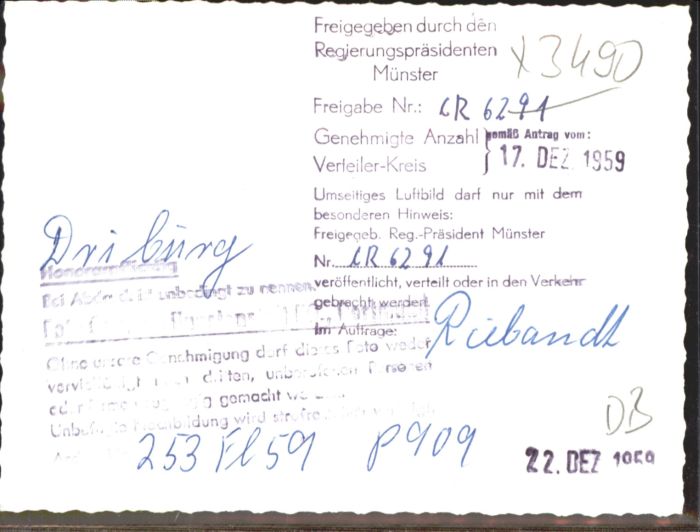 Freigegeben durch den
Regierungspräsidenten
Münster
X 3490
Freigabe Nr.: CR 6291
Genehmigte Anzahl
Verteiler-Kreis
gemäß Antrag vom:
17. DEZ. 1959
Umseitiges Luftbild darf nur mit dem
besonderen Hinweis:
Freigegeb. Reg.-Präsident Münster
Nr. CR 6291
veröffentlicht, verteilt oder in den Verkehr
gebracht werden.
Im Auftrage:
Riebandt
Driburg
Honorarpflichtig
Bei Abdruck ist unbedingt zu nennen:
Ohne unsere Genehmigung darf dieses Foto weder
vervielfältigt noch dritten, unberufenen Personen
gemacht werden
Unbefugte Nachbildung wird
253 Fl 59 P909
DB
22. DEZ 1959